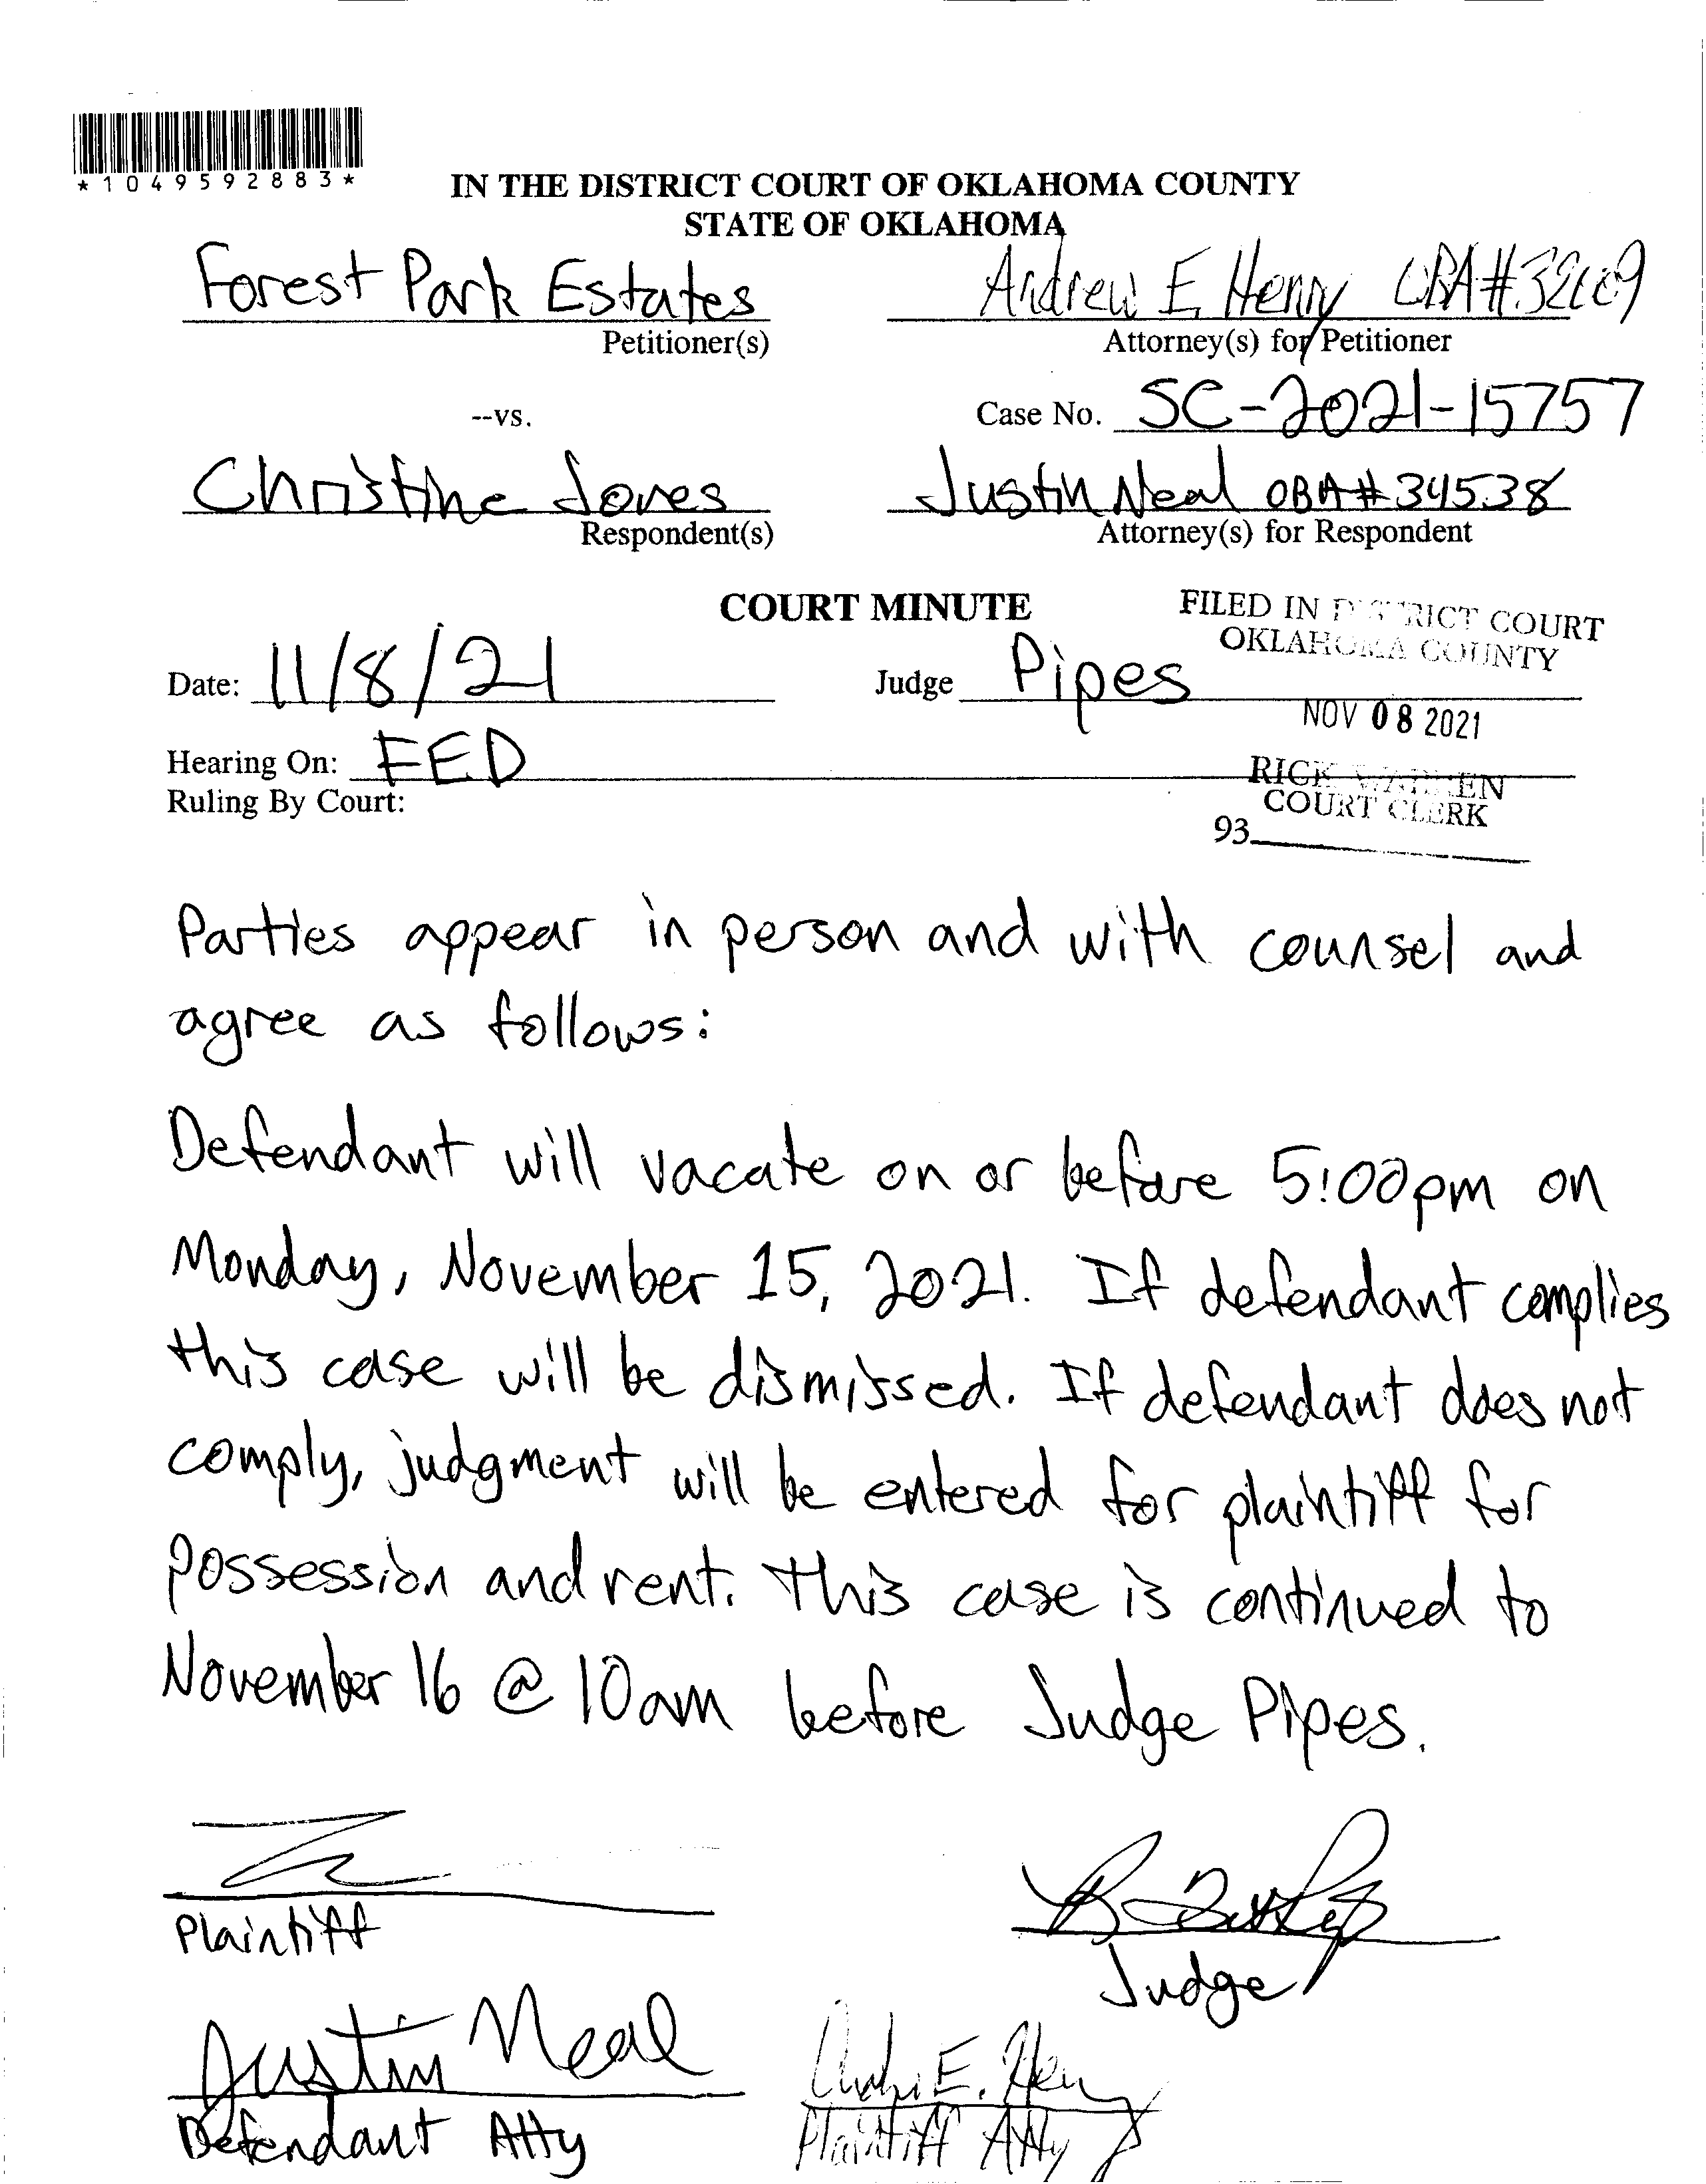 *1049592883*
IN THE DISTRICT COURT OF OKLAHOMA COUNTY
STATE OF OKLAHOMA
Forest Park Estates
Petitioner(s)
Andrew E. Henry OBA#
Attorney(s) for Petitioner
--vs.
Case No. SC-2021-15757
Christine Jones
Respondent(s)
Justin Neal OBA# 34538
Attorney(s) for Respondent
COURT MINUTE
FILED IN DISTRICT COURT
OKLAHOMA COUNTY
Date: 11/8/21
Judge Pipes
NOV 08 2021
Hearing On: FED
RICK WARREN
COURT CLERK
Ruling By Court:
93
Parties appear in person and with counsel and
agree as follows:
Defendant will vacate on or before 5:00pm on
Monday, November 15, 2021. If defendant complies
this case will be dismissed. If defendant does not
comply, judgment will be entered for plaintiff for
possession and rent. This case is continued to
November 16 @ 10am before Judge Pipes.
Plaintiff
Judge
Justin Neal
Defendant Atty
Andrew E. Henry
Plaintiff Atty